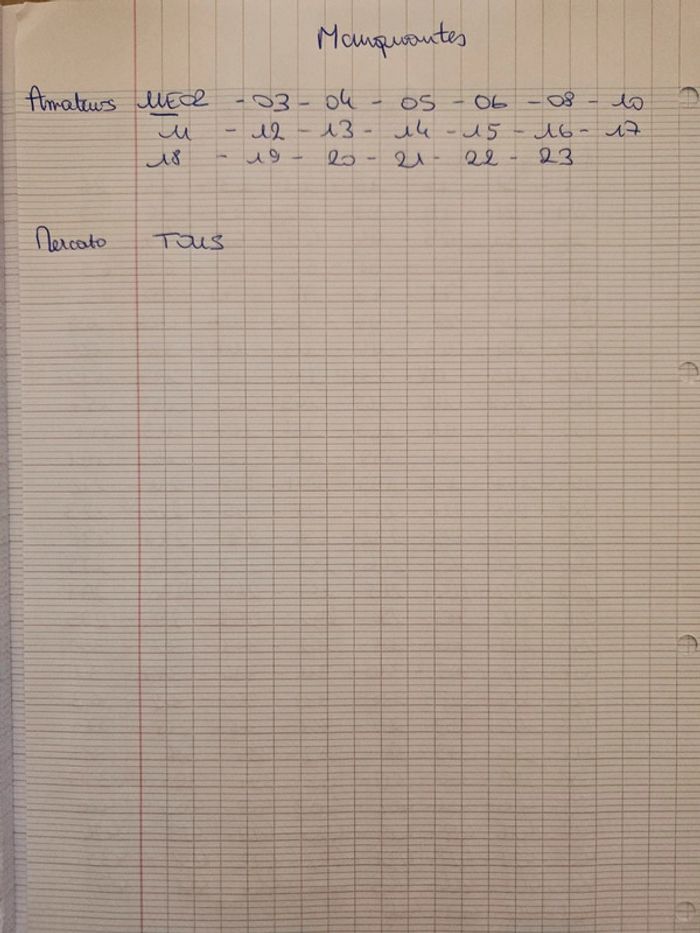 Manquantes
Amateurs ME02 - 03 - 04 - 05 - 06 - 08 - 10
11 - 12 - 13 - 14 - 15 - 16 - 17
18 - 19 - 20 - 21 - 22 - 23
Mercato TOUS